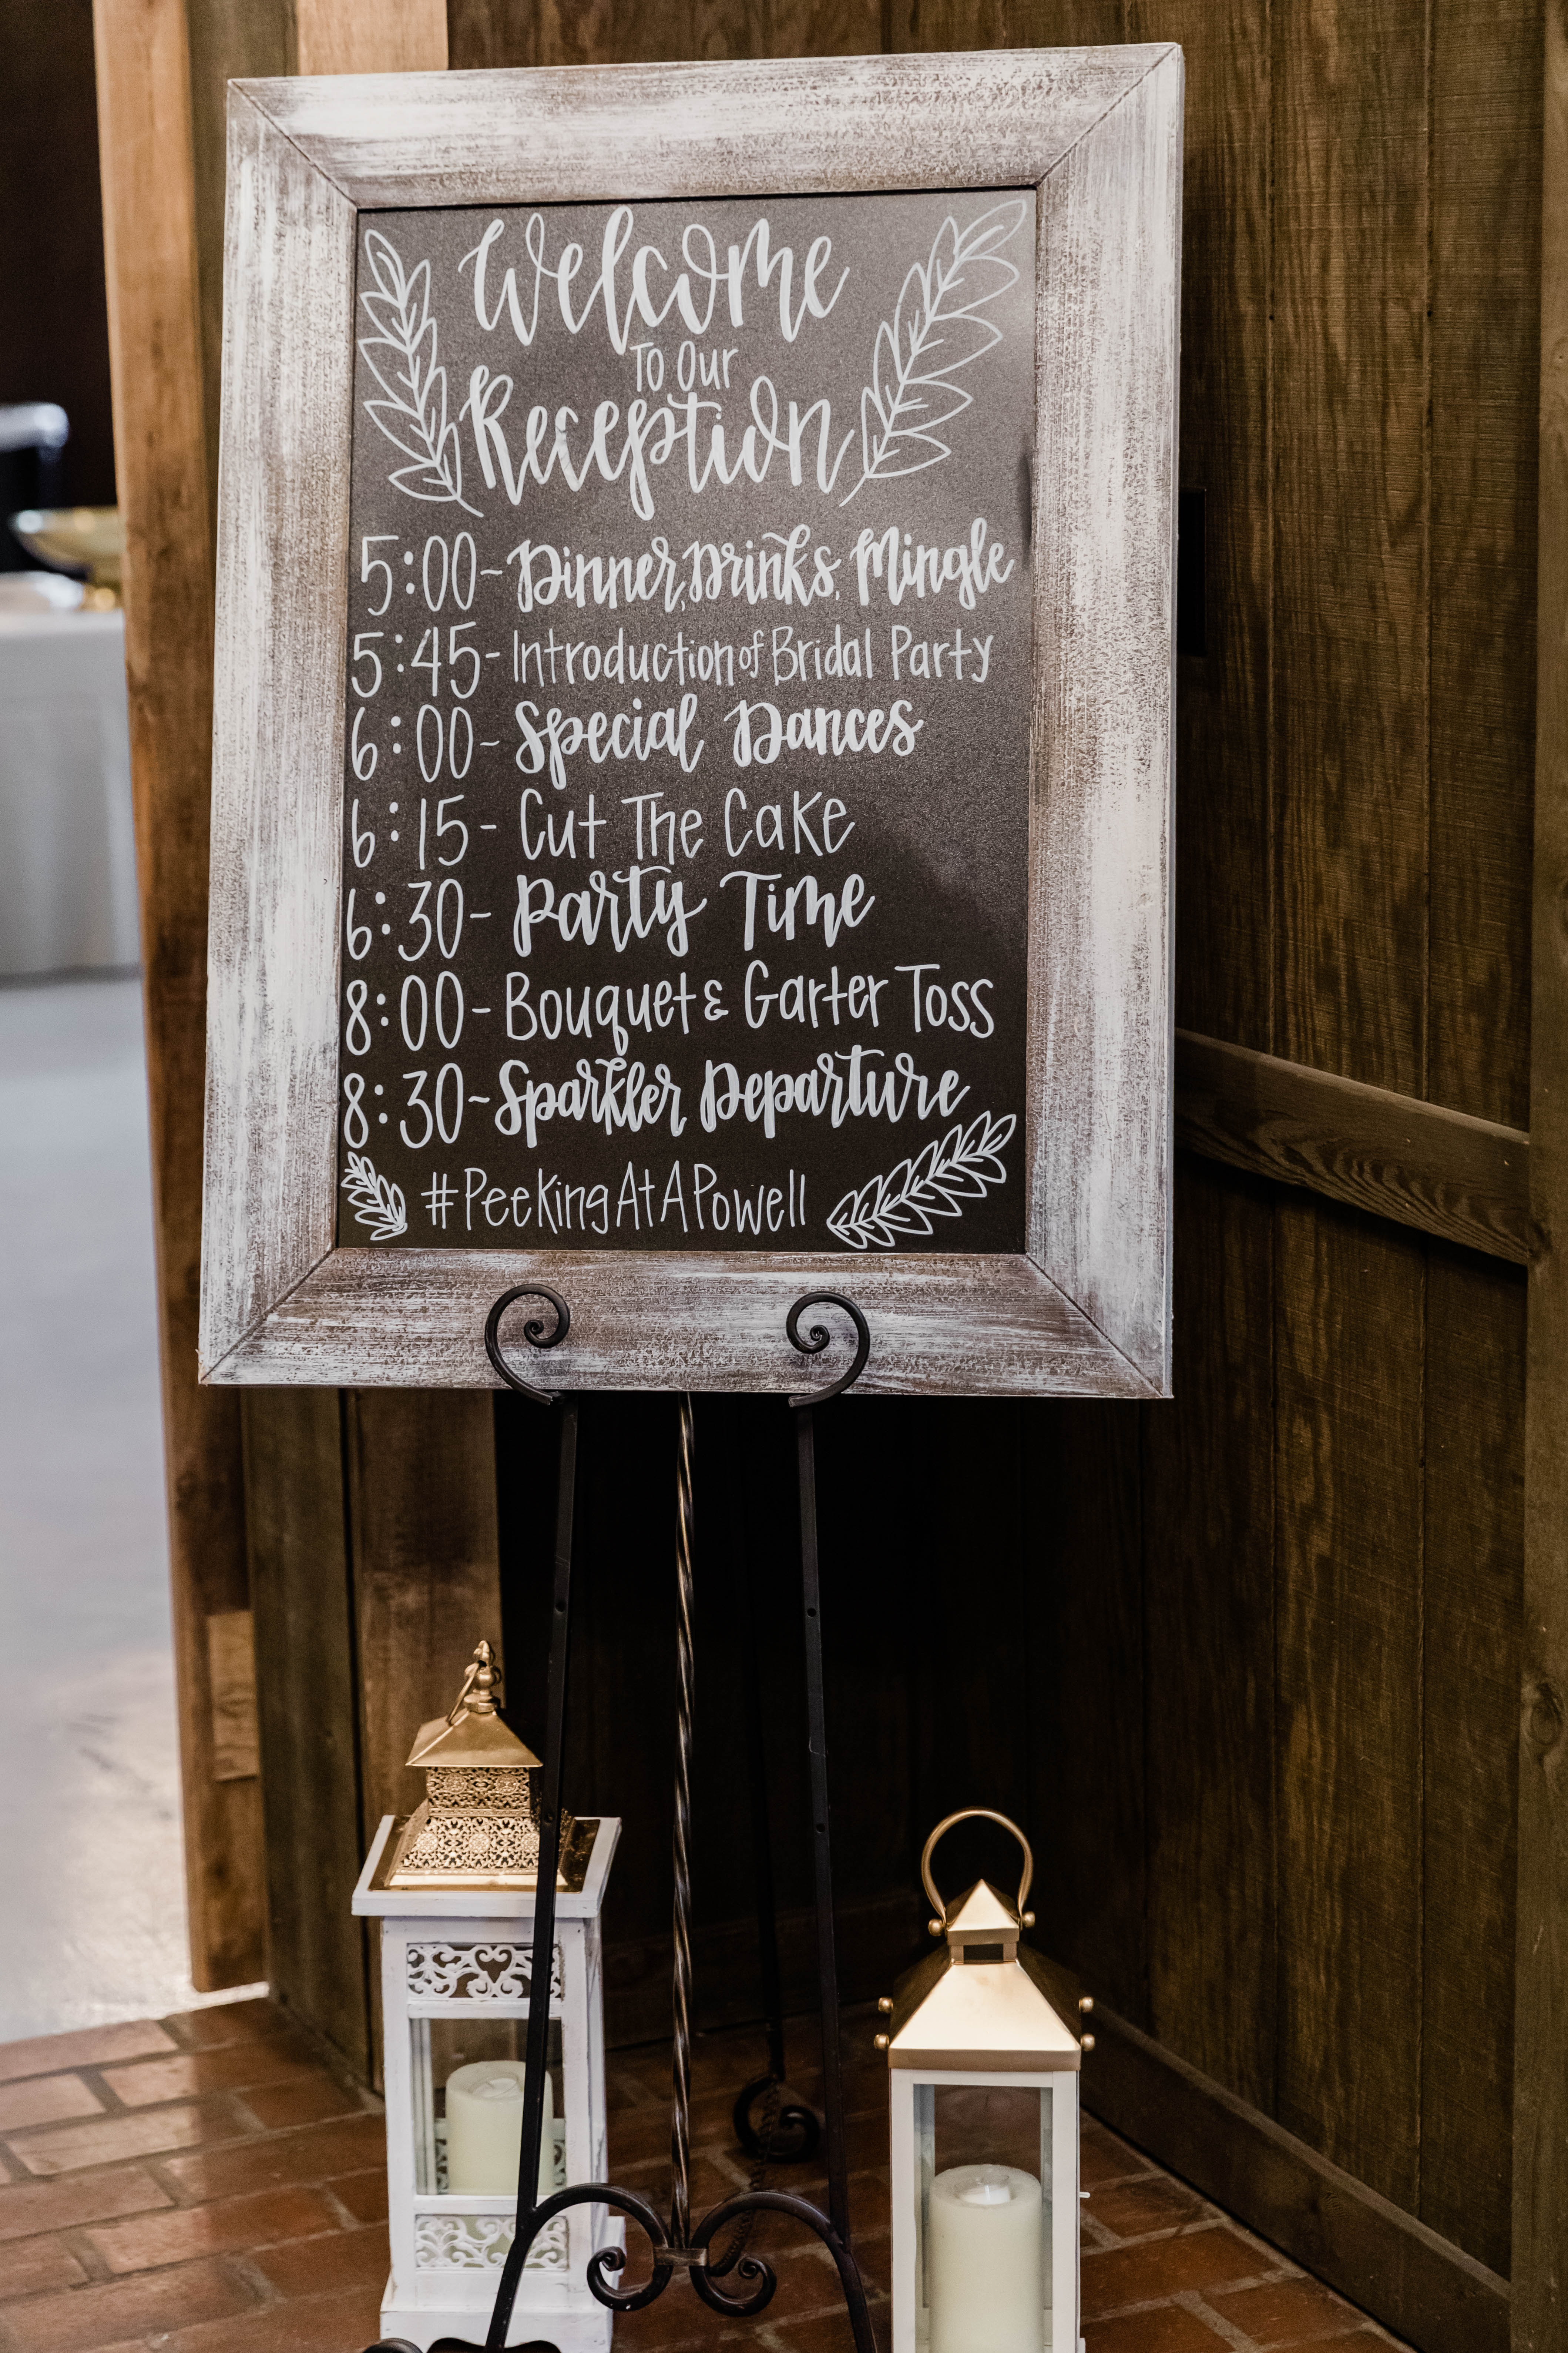 Welcome
To Our
Reception
5:00-Dinner, Drinks, Mingle
5:45-Introduction of Bridal Party
6:00-Special Dances
6:15-Cut The Cake
6:30-Party Time
8:00-Bouquet & Garter Toss
8:30-Sparkler Departure
#PeekingAtAPowell